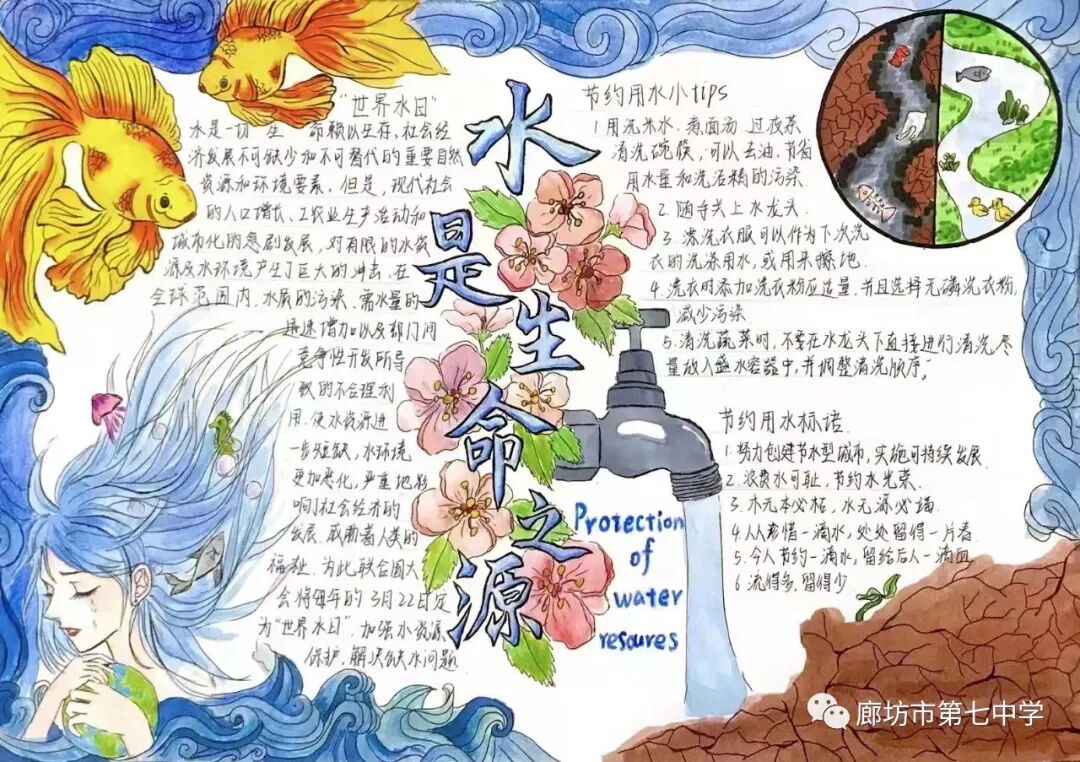 水是生命之源
"世界水日"
水是一切 生 命赖以生存,社会经
济发展不可缺少和不可替代的重要自然
资源和环境要素。但是,现代社会
的人口增长、工农业生产活动和
城市化的急剧发展,对有限的水资
源及水环境产生了巨大的冲击。在
全球范围内,水质的污染、需水量的
迅速增加以及部门间
竞争性开发所导
致的不合理利
用,使水资源进
一步短缺,水环境
更加恶化,严重地影
响了社会经济的
发展,威胁着人类的
福祉。为此,联合国大
会将每年的3月22日定
为"世界水日",加强水资源
保护,解决缺水问题
节约用水小tips
1用洗米水、煮面汤 过夜茶
清洗碗筷,可以去油,节省
用水量和洗洁精的污染
2.随手关上水龙头.
3.漂洗衣服可以作为下次洗
衣的洗涤用水,或用来擦地.
4.洗衣时添加洗衣粉应适量,并且选择无磷洗衣粉,
减少污染
5.清洗蔬菜时,不要在水龙头下直接进行清洗,尽
量放入盛水容器中,并调整清洗顺序;
节约用水标语.
1.努力创建节水型城市,实施可持续发展.
2.浪费水可耻,节约水光荣.
3.木无本必枯,水无源必竭.
4.人人珍惜一滴水,处处留得一片春.
5.今人节约一滴水,留给后人一滴血
6 流得多,留得少
Protection
of
water
resoures
廊坊市第七中学